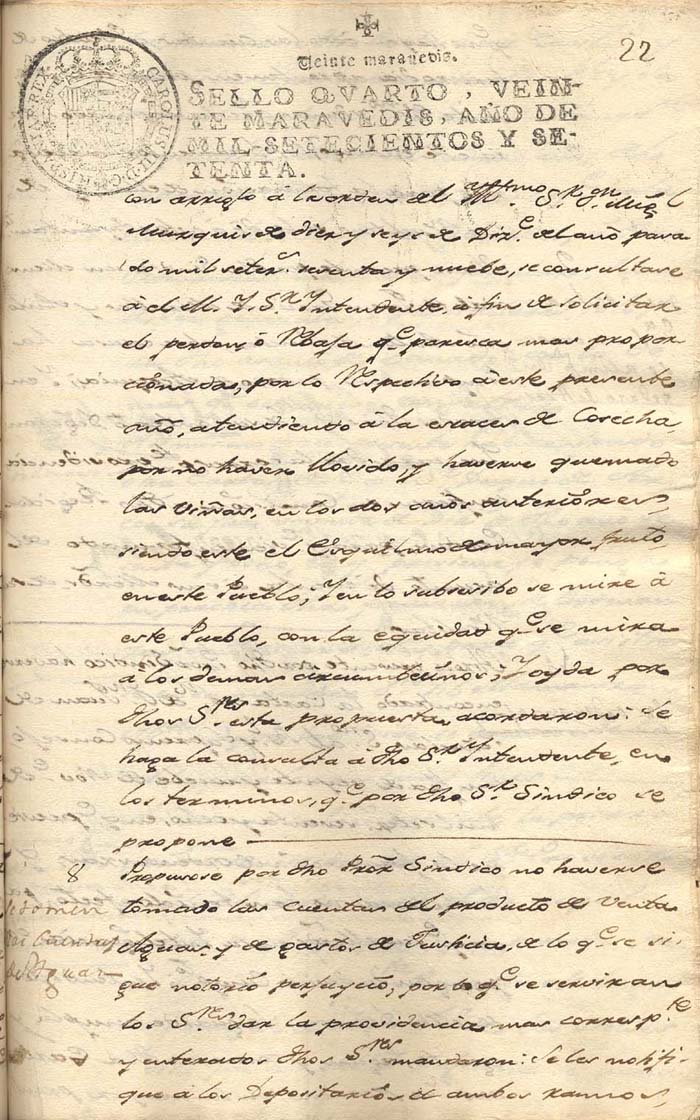 22
Veinte maravedis.
SELLO QVARTO, VEIN-
TE MARAVEDIS, AÑO DE
MIL SETECIENTOS Y SE-
TENTA.
CAROLUS III D. G. HISPANIAR. REX
con arreglo à la orden del Yllmo. Sr. Dn. Migl
Muzquis de diez y seys de Dize. del año pasa
do mil setecs. sesenta y nuebe, se consultase
à el M. Y. Sr. Yntendente, à fin de solicitar
el perdon, ò Rbaja qe. paresca mas propor
cionada, por lo Respectivo à este presente
año, atendiendo à la escases de Cosecha,
por no haver llovido, y haverse quemado
las viñas, en los dos años anteriores,
siendo este el Esquilmo de mayor fruto,
en este Pueblo; Y en lo subsesibo se mire à
este Pueblo, con la equidad qe. se mira
a los demas circumbecinos; Y oyda por
dhos Sres. esta propuesta, acordaron: Se
haga la consulta à dho Sr. Yntendente, en
los terminos, qe. por dho Sr. Sindico se
propone
8
Propusose por dho Pror. Sindico no haverse
se tomen
tomado las cuentas del producto de Venta
las Cuentas
Aguas, y de gastos de Justicia, de lo qe. se si-
de Aguas
gue notorio perjuycio, por lo qe. se serviran
los Sres. dar la providencia mas correspte.
y enterados dhos Sres. mandaron: Se les notifi-
que a los Depositarios de ambos ramos,